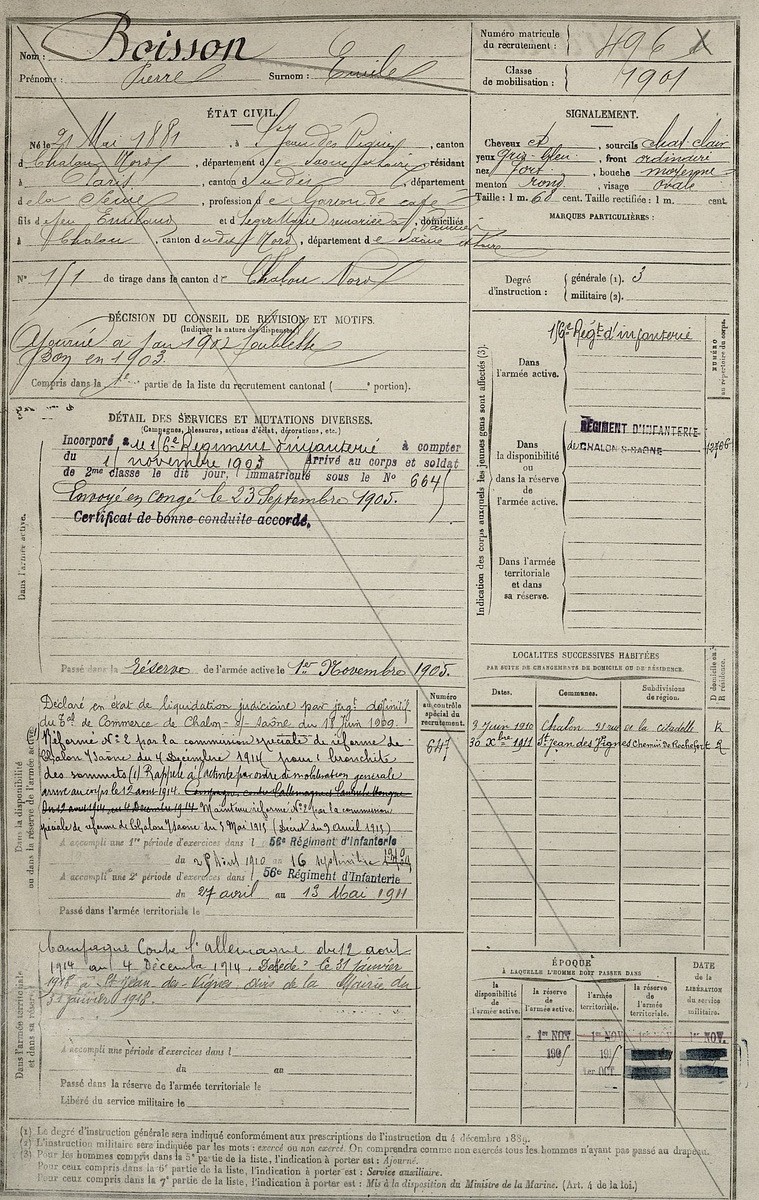 Nom : Boisson
Prénoms : Pierre Surnom : Emile
Numéro matricule
du recrutement : 496
Classe
de mobilisation : 1901
ÉTAT CIVIL.
Né le 21 Mai 1881, à St Jean des Vignes, canton
d Chalon Nord, département de Saone et Loire, résidant
à Paris, canton du dit, département
de la Seine, profession de Garçon de café
fils de feu Emiland et de Leger Marie remariée à , domiciliés
à Chalon, canton du dit Nord, département de Saône et Loire
N° 151 de tirage dans le canton de Chalon Nord
SIGNALEMENT.
Cheveux et, sourcils chat. clair
yeux gris-bleu, front ordinaire
nez fort, bouche moyenne
menton rond, visage ovale
Taille : 1 m. 60 cent. Taille rectifiée : 1 m. cent.
MARQUES PARTICULIÈRES :
Degré
d'instruction :
générale (1). 3
militaire (2).
DÉCISION DU CONSEIL DE RÉVISION ET MOTIFS.
(Indiquer la nature des dispenses)
Ajourné à un an 1902 faiblesse
Bon en 1903.
Compris dans la 1e partie de la liste du recrutement cantonal ( e portion).
DÉTAIL DES SERVICES ET MUTATIONS DIVERSES.
(Campagnes, blessures, actions d'éclat, décorations, etc.)
Dans l'armée active.
Incorporé au 56e Régiment d'infanterie à compter
du 1 novembre 1903 Arrivé au corps et soldat
de 2me classe le dit jour, Immatriculé sous le No 6645
Envoyé en congé le 23 Septembre 1905.
Certificat de bonne conduite accordé.
Passé dans la Réserve de l'armée active le 1er Novembre 1905.
Indication des corps auxquels les jeunes gens sont affectés (3).
Dans
l'armée active.
56e Régt d'infanterie
NUMÉRO
au répertoire du corps.
Dans
la disponibilité
ou
dans la réserve
de
l'armée active.
RÉGIMENT D'INFANTERIE
de CHALON-S-SAONE
Dans l'armée
territoriale
et dans
sa réserve.
Dans la disponibilité
ou dans la réserve de l'armée active
Déclaré en état de liquidation judiciaire par jugt définitif
du Tal de Commerce de Chalon-s/-Saône du 18 Juin 1909.
Réformé No 2 par la commission spéciale de réforme de
Chalon s/Saône du 4 Décembre 1914 pour : bronchite
des sommets (1) Rappelé à l'activité par ordre de mobilisation générale
arrivé au corps le 12 août 1914. Campagne contre l'Allemagne
Du 12 aout 1914 au 4 Décembre 1914. Maintenu réformé No 2 par la commission
spéciale de réforme de Chalon s/Saône du 5 Mai 1915 (Décret du 9 avril 1915)
A accompli une 1re période d'exercices dans l 56e Régiment d'Infanterie
du 25 Août 1910 au 16 septembre 1910
A accompli une 2e période d'exercices dans l 56e Régiment d'Infanterie
du 27 avril au 13 Mai 1911
Passé dans l'armée territoriale le
Numéro
au contrôle
spécial du
recrutement.
647
LOCALITÉS SUCCESSIVES HABITÉES
PAR SUITE DE CHANGEMENTS DE DOMICILE OU DE RÉSIDENCE.
Dates. Communes. Subdivisions
de région.
D domicile ou
R résidence.
3 Juin 1910 Chalon 21 rue de la citadelle R
30 Xbre 1911 St Jean des Vignes Chemin de Rochefort R
Dans l'armée territoriale
et dans sa réserve
Campagne Contre l'allemagne du 12 aout
1914 au 4 Décembre 1914. Décédé le 31 janvier
1918 à St Jean-des-Vignes avis de la Mairie du
31 janvier 1918.
A accompli une période d'exercices dans l
du au
Passé dans la réserve de l'armée territoriale le
Libéré du service militaire le
ÉPOQUE
À LAQUELLE L'HOMME DOIT PASSER DANS
la
disponibilité
de
l'armée active.
la réserve
de
l'armée active.
l'armée
territoriale.
la réserve
de
l'armée
territoriale.
DATE
de la
LIBÉRATION
du service
militaire.
1er NOV. 1er NOV. 1er NOV.
1905 191
1er OCT.
(1) Le degré d'instruction générale sera indiqué conformément aux prescriptions de l'instruction du 4 décembre 1889.
(2) L'instruction militaire sera indiquée par les mots : exercé ou non exercé. On comprendra comme non exercés tous les hommes n'ayant pas passé au drapeau.
(3) Pour les hommes compris dans la 5e partie de la liste, l'indication à porter est : Ajourné.
Pour ceux compris dans la 6e partie de la liste, l'indication à porter est : Service auxiliaire.
Pour ceux compris dans la 7e partie de la liste, l'indication à porter est : Mis à la disposition du Ministre de la Marine. (Art. 4 de la loi.)